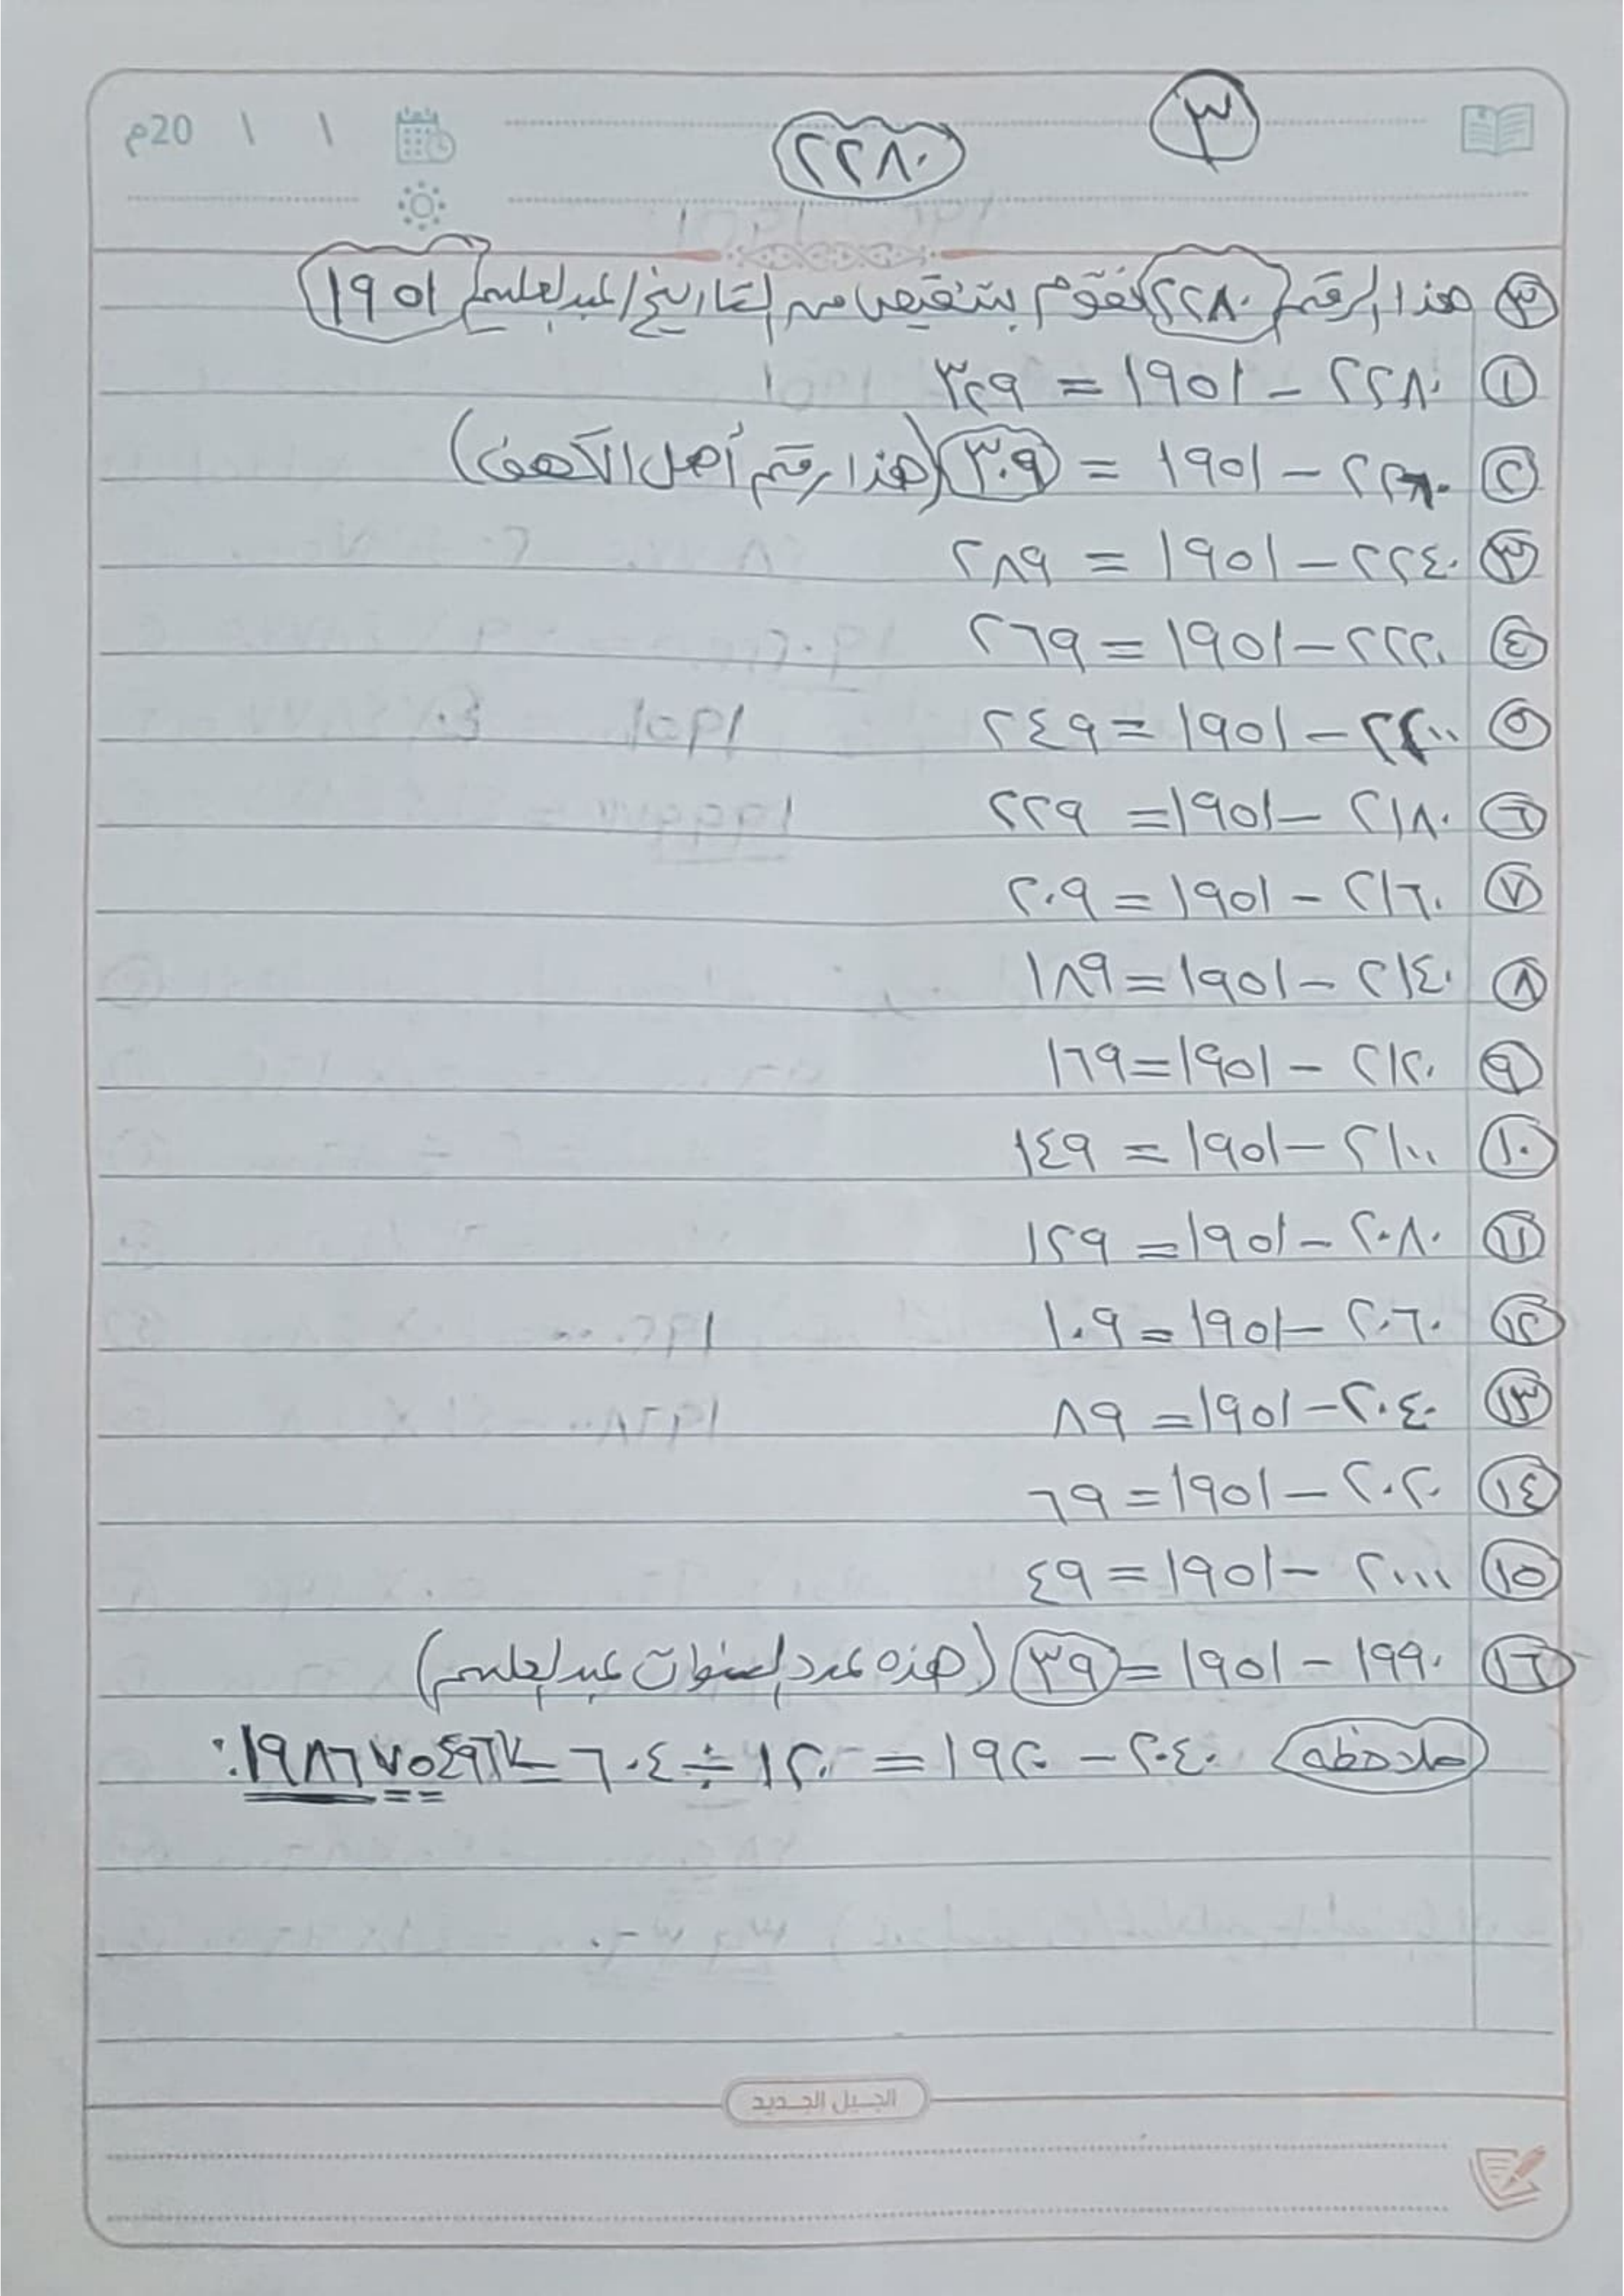 ٣
٢٢٨٠
20م / /
٣ هذا الرقم ٢٢٨٠ نقوم بتنقيص من التاريخ/عبدالعليم ١٩٥١
١ ٢٢٨٠ - ١٩٥١ = ٣٢٩
٢ ٢٢٦٠ - ١٩٥١ = ٣٠٩ (هذا رقم أهل الكهف)
٣ ٢٢٤٠ - ١٩٥١ = ٢٨٩
٤ ٢٢٢٠ - ١٩٥١ = ٢٦٩
٥ ٢٢٠٠ - ١٩٥١ = ٢٤٩
٦ ٢١٨٠ - ١٩٥١ = ٢٢٩
٧ ٢١٦٠ - ١٩٥١ = ٢٠٩
٨ ٢١٤٠ - ١٩٥١ = ١٨٩
٩ ٢١٢٠ - ١٩٥١ = ١٦٩
١٠ ٢١٠٠ - ١٩٥١ = ١٤٩
١١ ٢٠٨٠ - ١٩٥١ = ١٢٩
١٢ ٢٠٦٠ - ١٩٥١ = ١٠٩
١٣ ٢٠٤٠ - ١٩٥١ = ٨٩
١٤ ٢٠٢٠ - ١٩٥١ = ٦٩
١٥ ٢٠٠٠ - ١٩٥١ = ٤٩
١٦ ١٩٩٠ - ١٩٥١ = ٣٩ (هذه عدد السنوات عبدالعليم)
ملاحظه ٢٠٤٠ - ١٩٢٠ = ١٢٠ ÷ ٦٠٤ =
الجيل الجديد